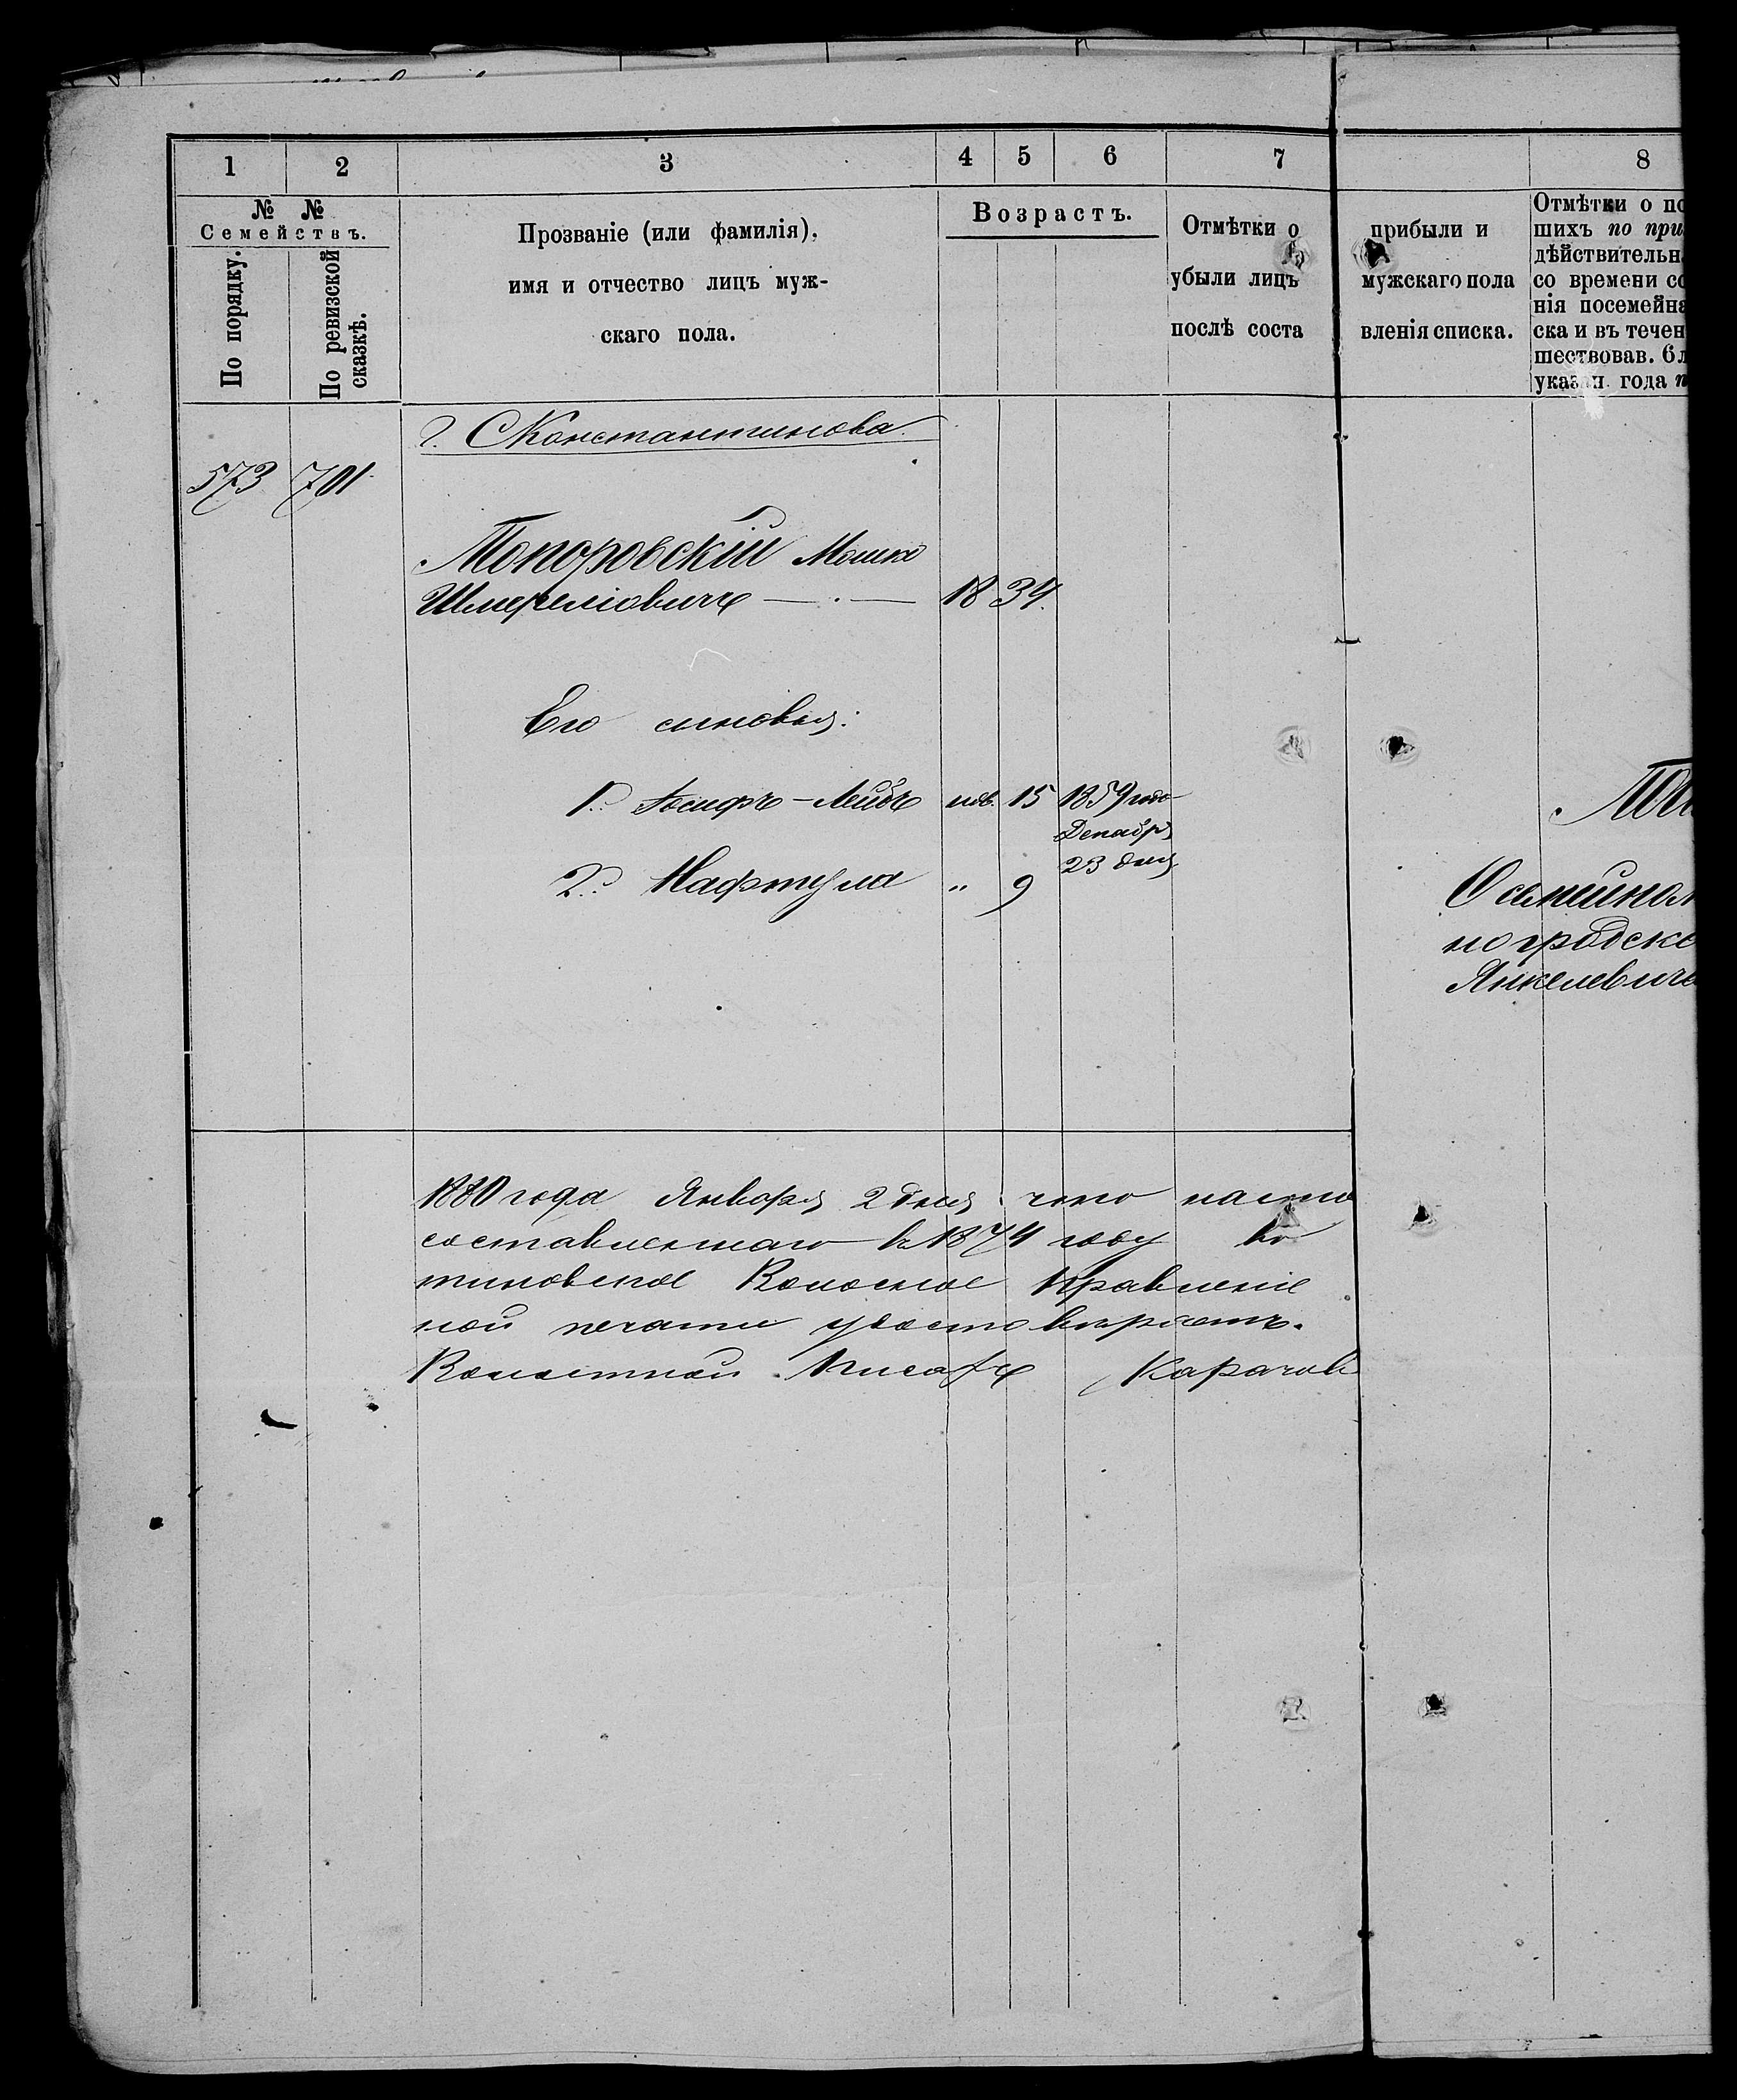 1 2 3 4 5 6 7 8
№ №
Семействъ.
По порядку.
По ревизской
сказкѣ.
Прозваніе (или фамилія),
имя и отчество лицъ муж-
скаго пола.
Возрастъ.
Отмѣтки о
убыли лицъ
послѣ соста
прибыли и
мужскаго пола
вленія списка.
Отмѣтки о по
шихъ по при
дѣйствительн
со времени со
нія посемейна
ска и въ течен
шествовав. бл
указан. года п
г. СКонстантинова
573 701
Топоровскій Мошко
Шмереліовичъ 18 34.
Его сыновья:
1. Іосифъ-Лейбъ нов. 15 1859 года
Декабря
23 дня
2. Нафтула " 9
Осемейном
ноградско
Янкелевича
1880 года Января 2 дня что насто
составленнаго въ 1874 году Ко
тиновское Волосное Правленіе
ной печати удостовѣряетъ.
Волостной Писарь Карачов